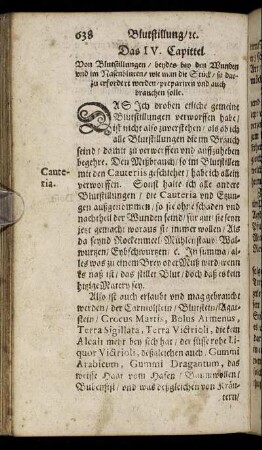 638 Blutstillung/ꝛc.
Das IV. Capittel
Von Blutstillungen / beydes bey den Wunden
und im Nasenbluten / wie man die Stück / so dar-
zu erfordert werden / prepariren und auch
brauchen solle.
DAS Ich droben etliche gemeine
Blutstillungen verworffen habe/
ist nicht also zuverstehen / als ob ich
alle Blutstillungen die im Brauch
seind / damit zu verwerffen und auffzuheben
begehre. Den Mißbrauch / so im Blutstillen
Caute-
ria.
mit den Cauteriis geschiehet / habe ich allein
verworffen. Sonst halte ich alle andere
Blutstillungen / die Cauteria und Etzun-
gen außgenommen / so sie ohne schaden und
nachtheil der Wunden seind / für gut / sie seyn
jetzt gemacht woraus sie immer wollen / Als
da seynd Rockenmeel / Mühlenstaub / Wal-
wurtzen / Eybschwurtzen ꝛc. In summa / al-
les was zu einem Brey oder Muß wird wenn
es naß ist / das stillet Blut / doch daß es kein
hitzige Matery sey.
Also ist auch erlaubt und mag gebraucht
werden / der Carniolstein / Blutstein / Agat-
stein / Crocus Martis, Bolus Armenus,
Terra Sigillata, Terra Vitrioli, die kein
Alcali mehr bey sich hat / der süsse rohe Li-
quor Vitrioli, deßgleichen auch, Gummi
Arabicum, Gummi Dragantum, das
weisse Haar vom Hasen / Baumwollen/
Bubenfist / und was deßgleichen von Kräu-
tern/